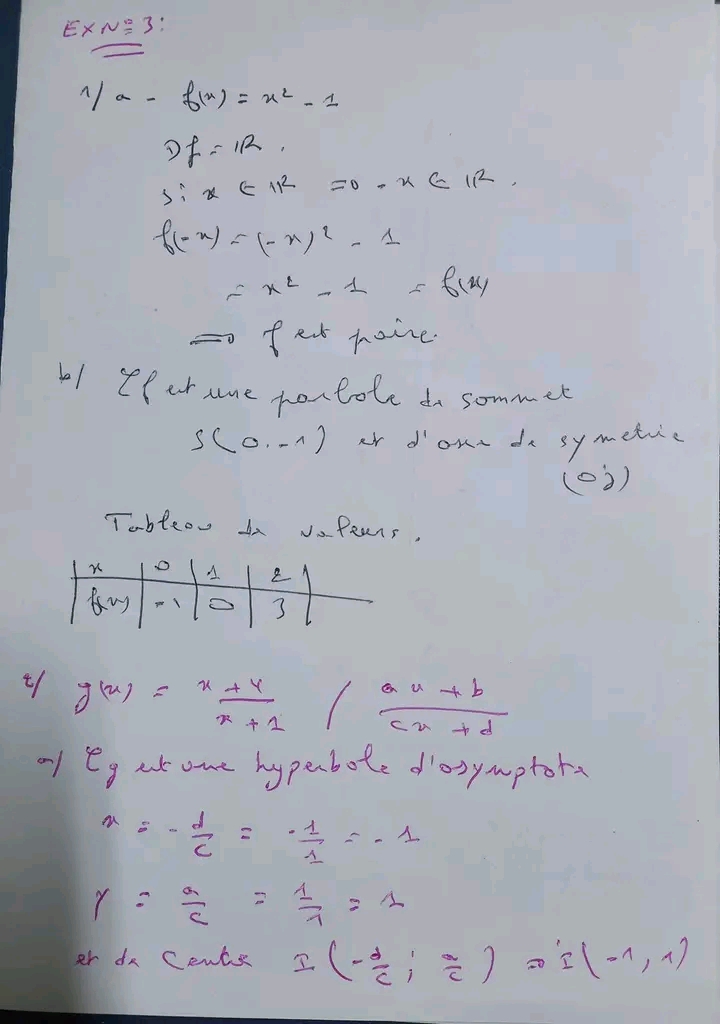 EX Nº 3:
1/ a - f(x) = x² - 1
Df = IR.
si x ∈ IR => -x ∈ IR.
f(-x) = (-x)² - 1
= x² - 1 = f(x)
=> f est paire.
b/ ζf est une parbole de sommet
S(0.-1) et d'axe de symetrie
(oj)
Tableau de valeurs.
| x | 0 | 1 | 2 |
| f(x) | -1 | 0 | 3 |
2/ g(x) = x+4 / x+1 / ax+b / cx+d
a/ ζg est une hyperbole d'asymptote
x = -d/c = -1/1 = -1
y = a/c = 1/1 = 1
et de centre I(-d/c ; a/c) => I(-1,1)